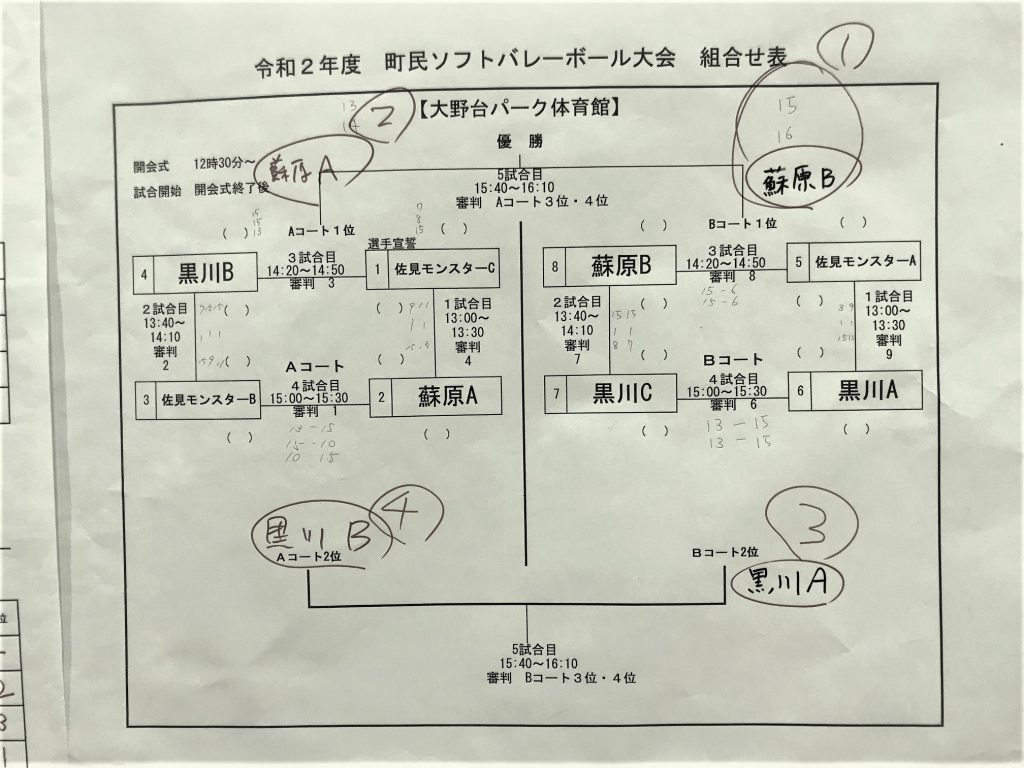 令和２年度　町民ソフトバレーボール大会　組合せ表
①
【大野台パーク体育館】
13
14
②
15
16
優　勝
開会式　12時30分～
試合開始　開会式終了後
蘇原A
蘇原B
5試合目
15:40～16:10
審判　Aコート３位・４位
Aコート１位
Bコート１位
15
15
13
7
8
15
(　)
(　)
(　)
(　)
選手宣誓
4 黒川B
3試合目
14:20～14:50
審判　3
1 佐見モンスターC
8 蘇原B
3試合目
14:20～14:50
審判　8
5 佐見モンスターA
15 - 6
15 - 6
2試合目
13:40～
14:10
審判
2
(　)
(　)
(　)
(　)
1試合目
13:00～
13:30
審判
4
2試合目
13:40～
14:10
審判
7
15 15
8 7
(　)
(　)
(　)
(　)
1試合目
13:00～
13:30
審判
9
Aコート
Bコート
3 佐見モンスターB
4試合目
15:00～15:30
審判　1
2 蘇原A
7 黒川C
4試合目
15:00～15:30
審判　6
6 黒川A
(　)
13 - 15
15 - 10
10　15
(　)
(　)
13 - 15
13 - 15
(　)
黒川B
④
Aコート2位
③
Bコート2位
黒川A
5試合目
15:40～16:10
審判　Bコート３位・４位